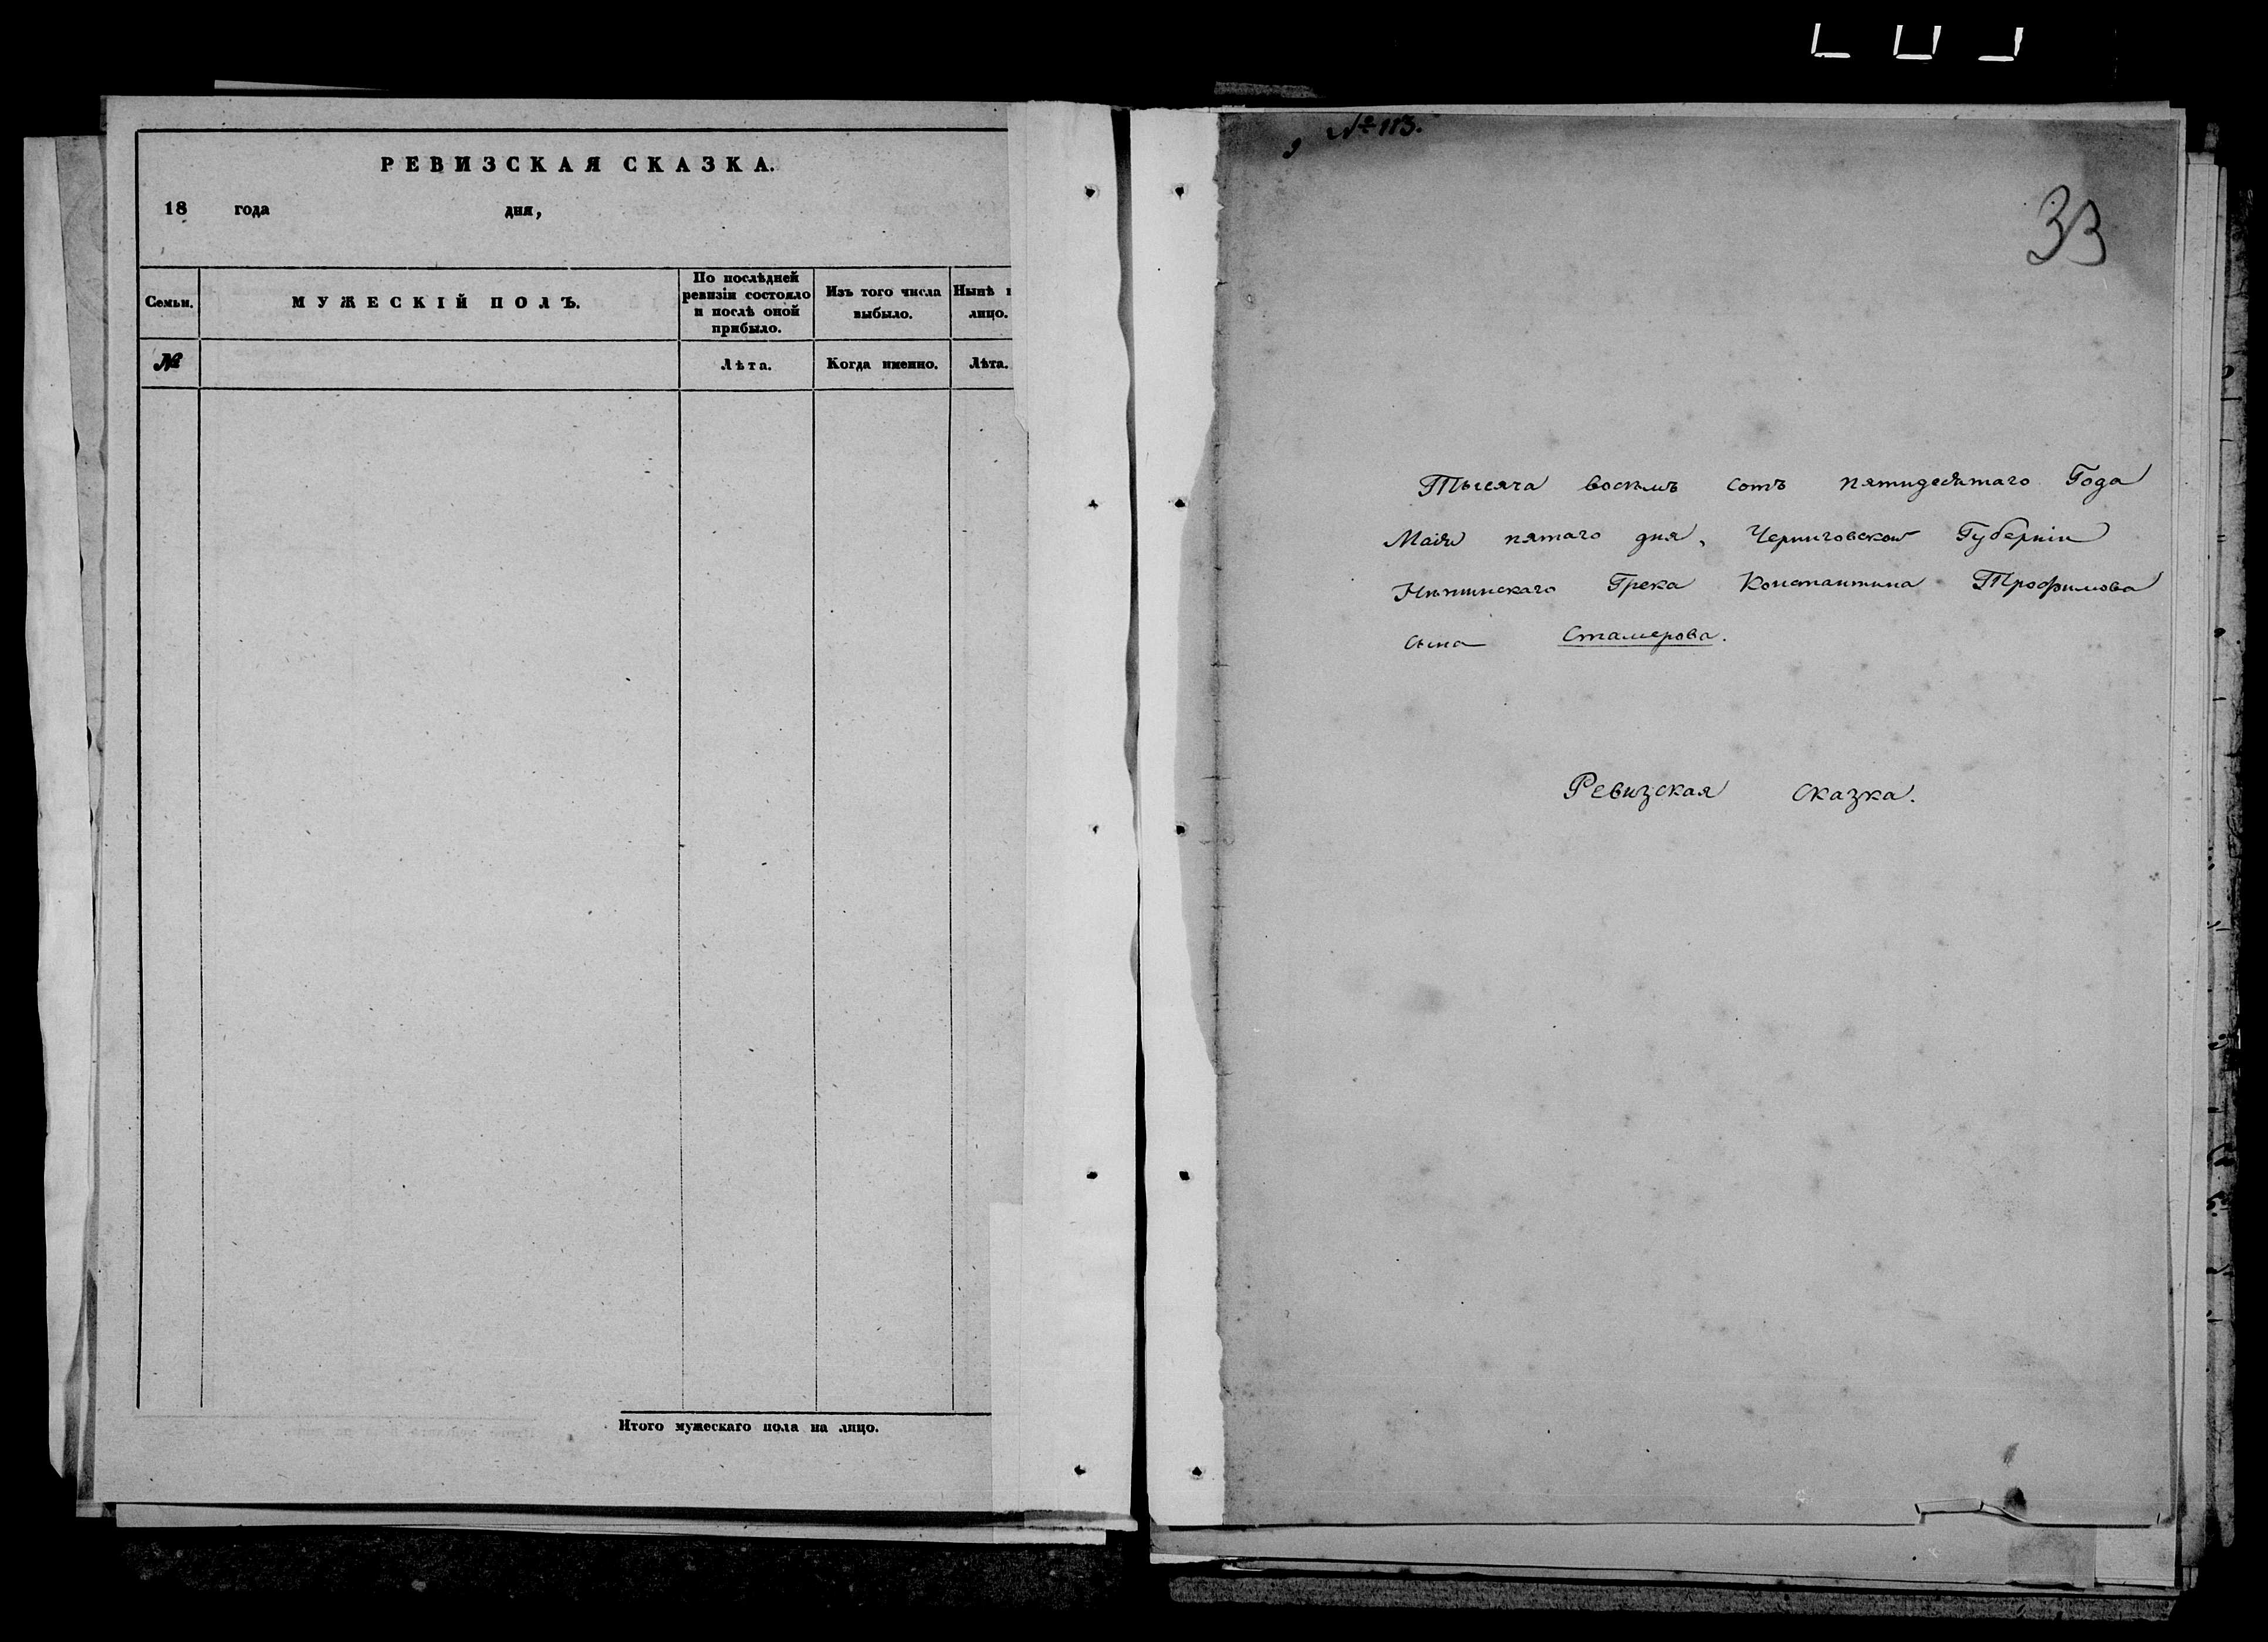 РЕВИЗСКАЯ СКАЗКА.
18 года дня,
Семьи.
МУЖЕСКІЙ ПОЛЪ.
По послѣдней ревизіи состояло и послѣ оной прибыло.
Изъ того числа выбыло.
Нынѣ н
лицо.
№
Лѣта.
Когда именно.
Лѣта.
Итого мужескаго пола на лицо.
№ 113.
33
Тысяча восемь сотъ пятидесятаго Года
Маія пятаго дня, Черниговской Губерніи
Нѣжинскаго Грека Константина Трофимова
сына Стамерова.
Ревизская сказка.